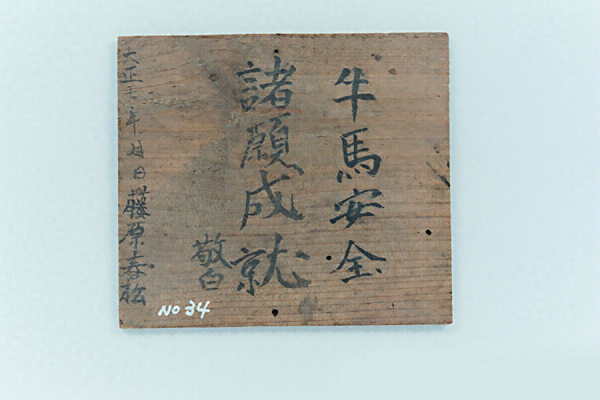 牛馬安全
諸願成就
敬白
大正七年 月日 藤原春松
NO 34